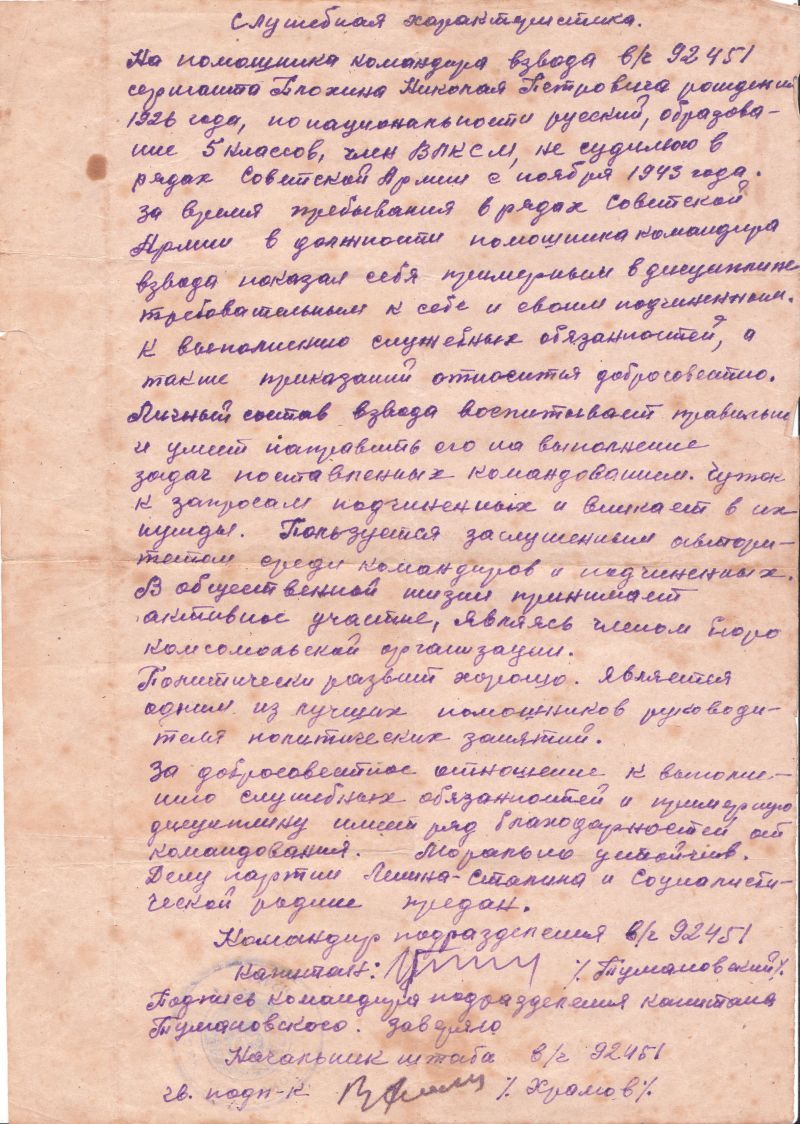 Служебная характеристика.
На помощника командира взвода в/ч 92451
сержанта Блохина Николая Петровича рождения
1926 года, по национальности русский, образова-
ние 5 классов, член ВЛКСМ, не судимого в
рядах Советской Армии с ноября 1943 года.
За время пребывания в рядах Советской
Армии в должности помощника командира
взвода показал себя примерным в дисциплине
требовательным к себе и своим подчиненным.
К выполнению служебных обязанностей, а
также приказаний относится добросовестно.
Личный состав взвода воспитывает правильно
и умеет направить его на выполнение
задач поставленных командованием. Чуток
к запросам подчиненных и вникает в их
нужды. Пользуется заслуженным автори-
тетом среди командиров и подчиненных.
В общественной жизни принимает
активное участие, являясь членом бюро
комсомольской организации.
Политически развит хорошо. Является
одним из лучших помощников руководи-
теля политических занятий.
За добросовестное отношение к выполне-
нию служебных обязанностей и примерную
дисциплину имеет ряд благодарностей от
командования. Морально устойчив.
Делу партии Ленина-Сталина и Социалисти-
ческой родине предан.
Командир подразделения в/ч 92451
капитан: /Тумановский/
Подпись командира подразделения капитана
Тумановского. заверяю
Начальник штаба в/ч 92451
гв. подп-к /Храмов/